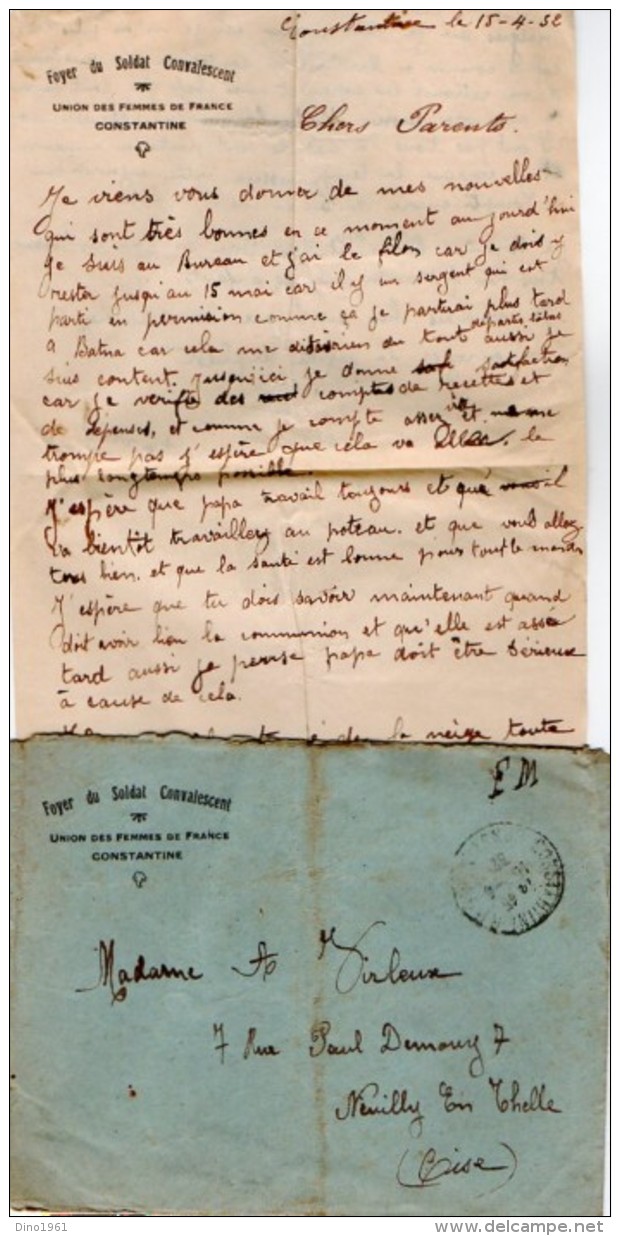 Constantine le 15-4-32
Foyer du Soldat Convalescent
UNION DES FEMMES DE FRANCE
CONSTANTINE
Chers Parents.
Je viens vous donner de mes nouvelles
qui sont très bonnes en ce moment aujourd'hui
je suis au Bureau et j'ai le filon car je dois y
rester jusqu'au 15 mai car il y un sergent qui est
parti en permission comme ça je partirai plus tard
a Batna car cela me disais rien du tout départs là bas aussi je
suis content. Jusqu'ici je donne satisfaction
car je verifie des comptes de recettes et
de depenses, et comme je compte assez vite et me
trompe pas j'espère que cela va aller. le
plus longtemps possible.
J'espère que papa travail toujours et qu'il
va bientôt travailler au poteau. et que vous allez
tous bien. et que la santé est bonne pour tout le monde
J'espère que tu dois savoir maintenant quand
doit avoir lieu la communion et qu'elle est assé
tard aussi je pense papa doit être sérieux
à cause de cela.
de la neige toute
Foyer du Soldat Convalescent
UNION DES FEMMES DE FRANCE
CONSTANTINE
F M
Madame A Virleux
7 Rue Paul Demouy 7
Neuilly En Thelle
(Oise)
Dino1961
www.delcampe.net